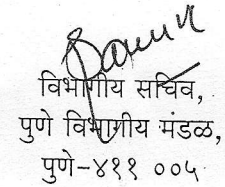 विभागीय सचिव,
पुणे विभागीय मंडळ,
पुणे-४११ ००५